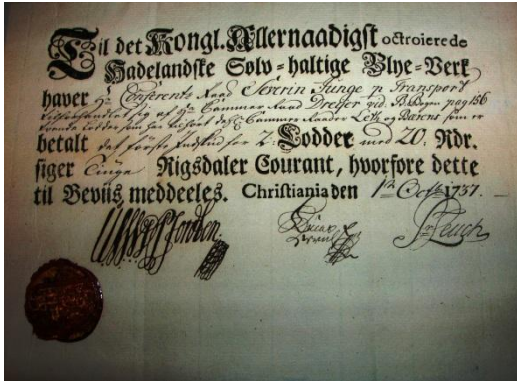 Til det Kongl. Allernaadigst octroierede
Hadelandske Sølv-haltige Blye-Verk
haver Hr. Conferents Raad Severin Junge p. Transport
sig af Hr. Cammer Raad Dreyer vid. B. Bogen pag 156
Lodder som har Cammer Raader Leth og Barens som er
betalt det første Indskud for 2: Lodder med 20: Rdr.
siger Tiuge Rigsdaler Courant, hvorfore dette
til Beviis meddeeles. Christiania den 1ste Octb 1757.
Leuch